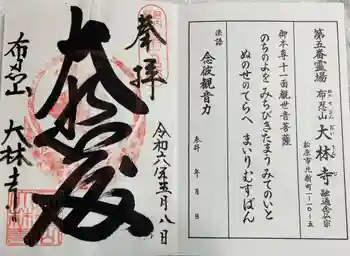 奉拝
大悲殿
令和六年五月八日
布忍山 大林寺
第五番霊場
布忍山 大林寺 融通念仏宗
松原市北新町一-一〇-五
御本尊 十一面観世音菩薩
のちのよを みちびきたまう みてのいと
ぬのせのてらへ まいりむすばん
法語
念彼観音力
参拝 年 月 日